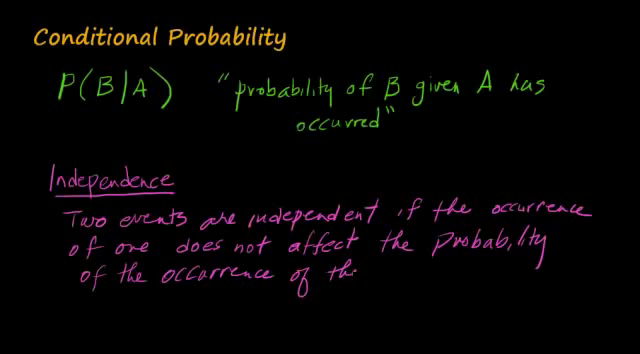 Conditional Probability
P(B/A) "probability of B given A has
occurred"
Independence
Two events are independent if the occurrence
of one does not affect the probability
of the occurrence of th